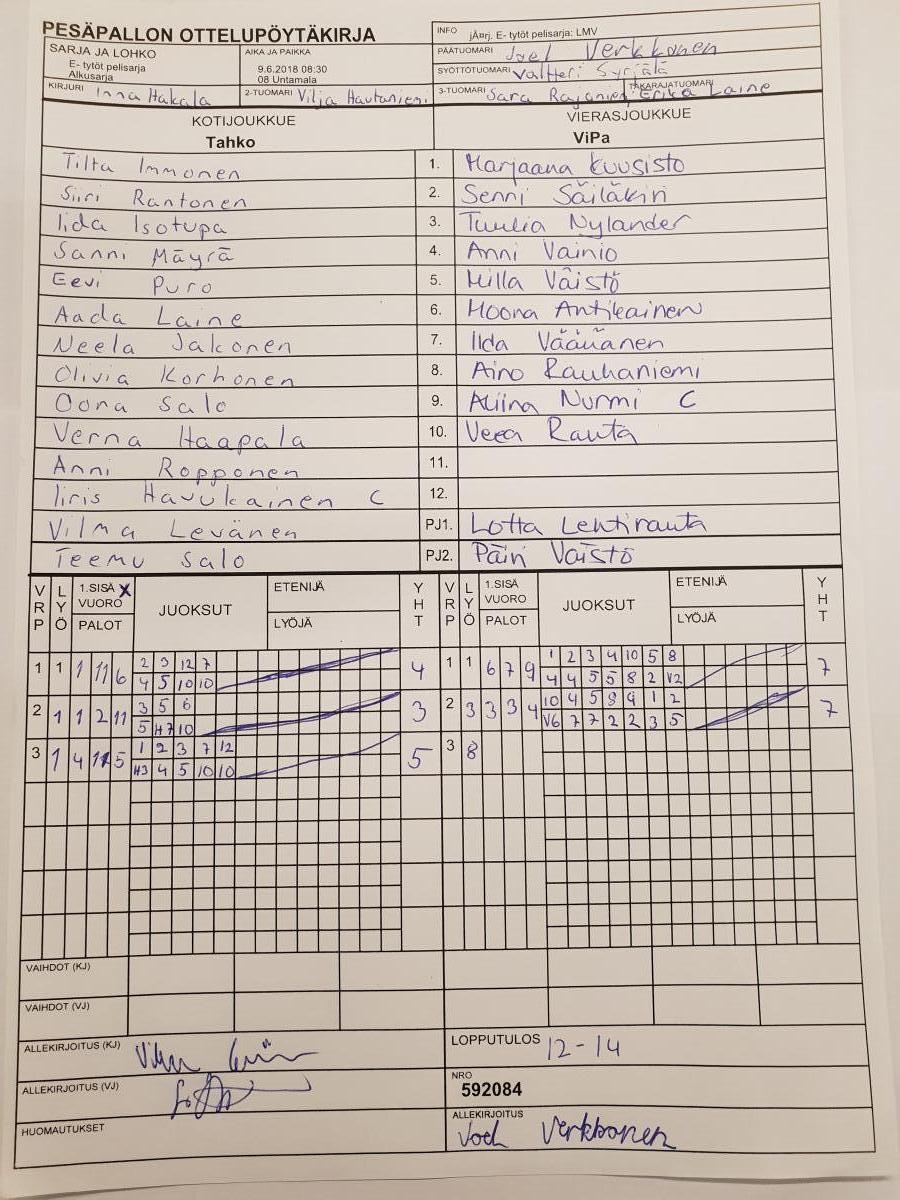 PESÄPALLON OTTELUPÖYTÄKIRJA
INFO jÃ¤rj. E- tytöt pelisarja: LMV
SARJA JA LOHKO
E- tytöt pelisarja
Alkusarja
AIKA JA PAIKKA
9.6.2018 08:30
08 Untamala
PÄÄTUOMARI Joel Verkkonen
SYÖTTÖTUOMARI Valtteri Syrjälä
KIRJURI Inna Hakala
2-TUOMARI Vilja Hautaniemi
3-TUOMARI Sara Rajaniemi
TAKARAJATUOMARI Erika Laine
KOTIJOUKKUE
Tahko
VIERASJOUKKUE
ViPa
Tilta Immonen 1. Marjaana Kuusisto
Siiri Rantonen 2. Senni Säiläkivi
Iida Isotupa 3. Tuulia Nylander
Sanni Mäyrä 4. Anni Vainio
Eevi Puro 5. Milla Väistö
Aada Laine 6. Moona Antikainen
Neela Jalonen 7. Ilda Väänänen
Olivia Korhonen 8. Aino Rauhaniemi
Oona Salo 9. Aliina Nurmi C
Verna Haapala 10. Veera Rauta
Anni Ropponen 11.
Iiris Havukainen C 12.
Vilma Levänen PJ1. Lotta Lehtirauta
Teemu Salo PJ2. Päivi Väistö
VRP LYÖ 1.SISÄ X VUORO PALOT JUOKSUT ETENIJÄ LYÖJÄ YHT VRP LYÖ 1.SISÄ VUORO PALOT JUOKSUT ETENIJÄ LYÖJÄ YHT
1 1 1 11 6 2 3 12 7 4 1 1 6 7 9 1 2 3 4 10 5 8 7
4 5 10 10 4 4 5 5 8 2 V2
2 1 1 2 11 3 5 6 3 2 3 3 3 4 10 4 5 8 9 1 2 7
5 H7 10 V6 7 7 2 2 3 5
3 1 4 11 5 1 2 3 7 12 5 3 8
H3 4 5 10 10
VAIHDOT (KJ)
VAIHDOT (VJ)
ALLEKIRJOITUS (KJ)
LOPPUTULOS 12-14
ALLEKIRJOITUS (VJ)
NRO
592084
HUOMAUTUKSET
ALLEKIRJOITUS
Joel Verkkonen